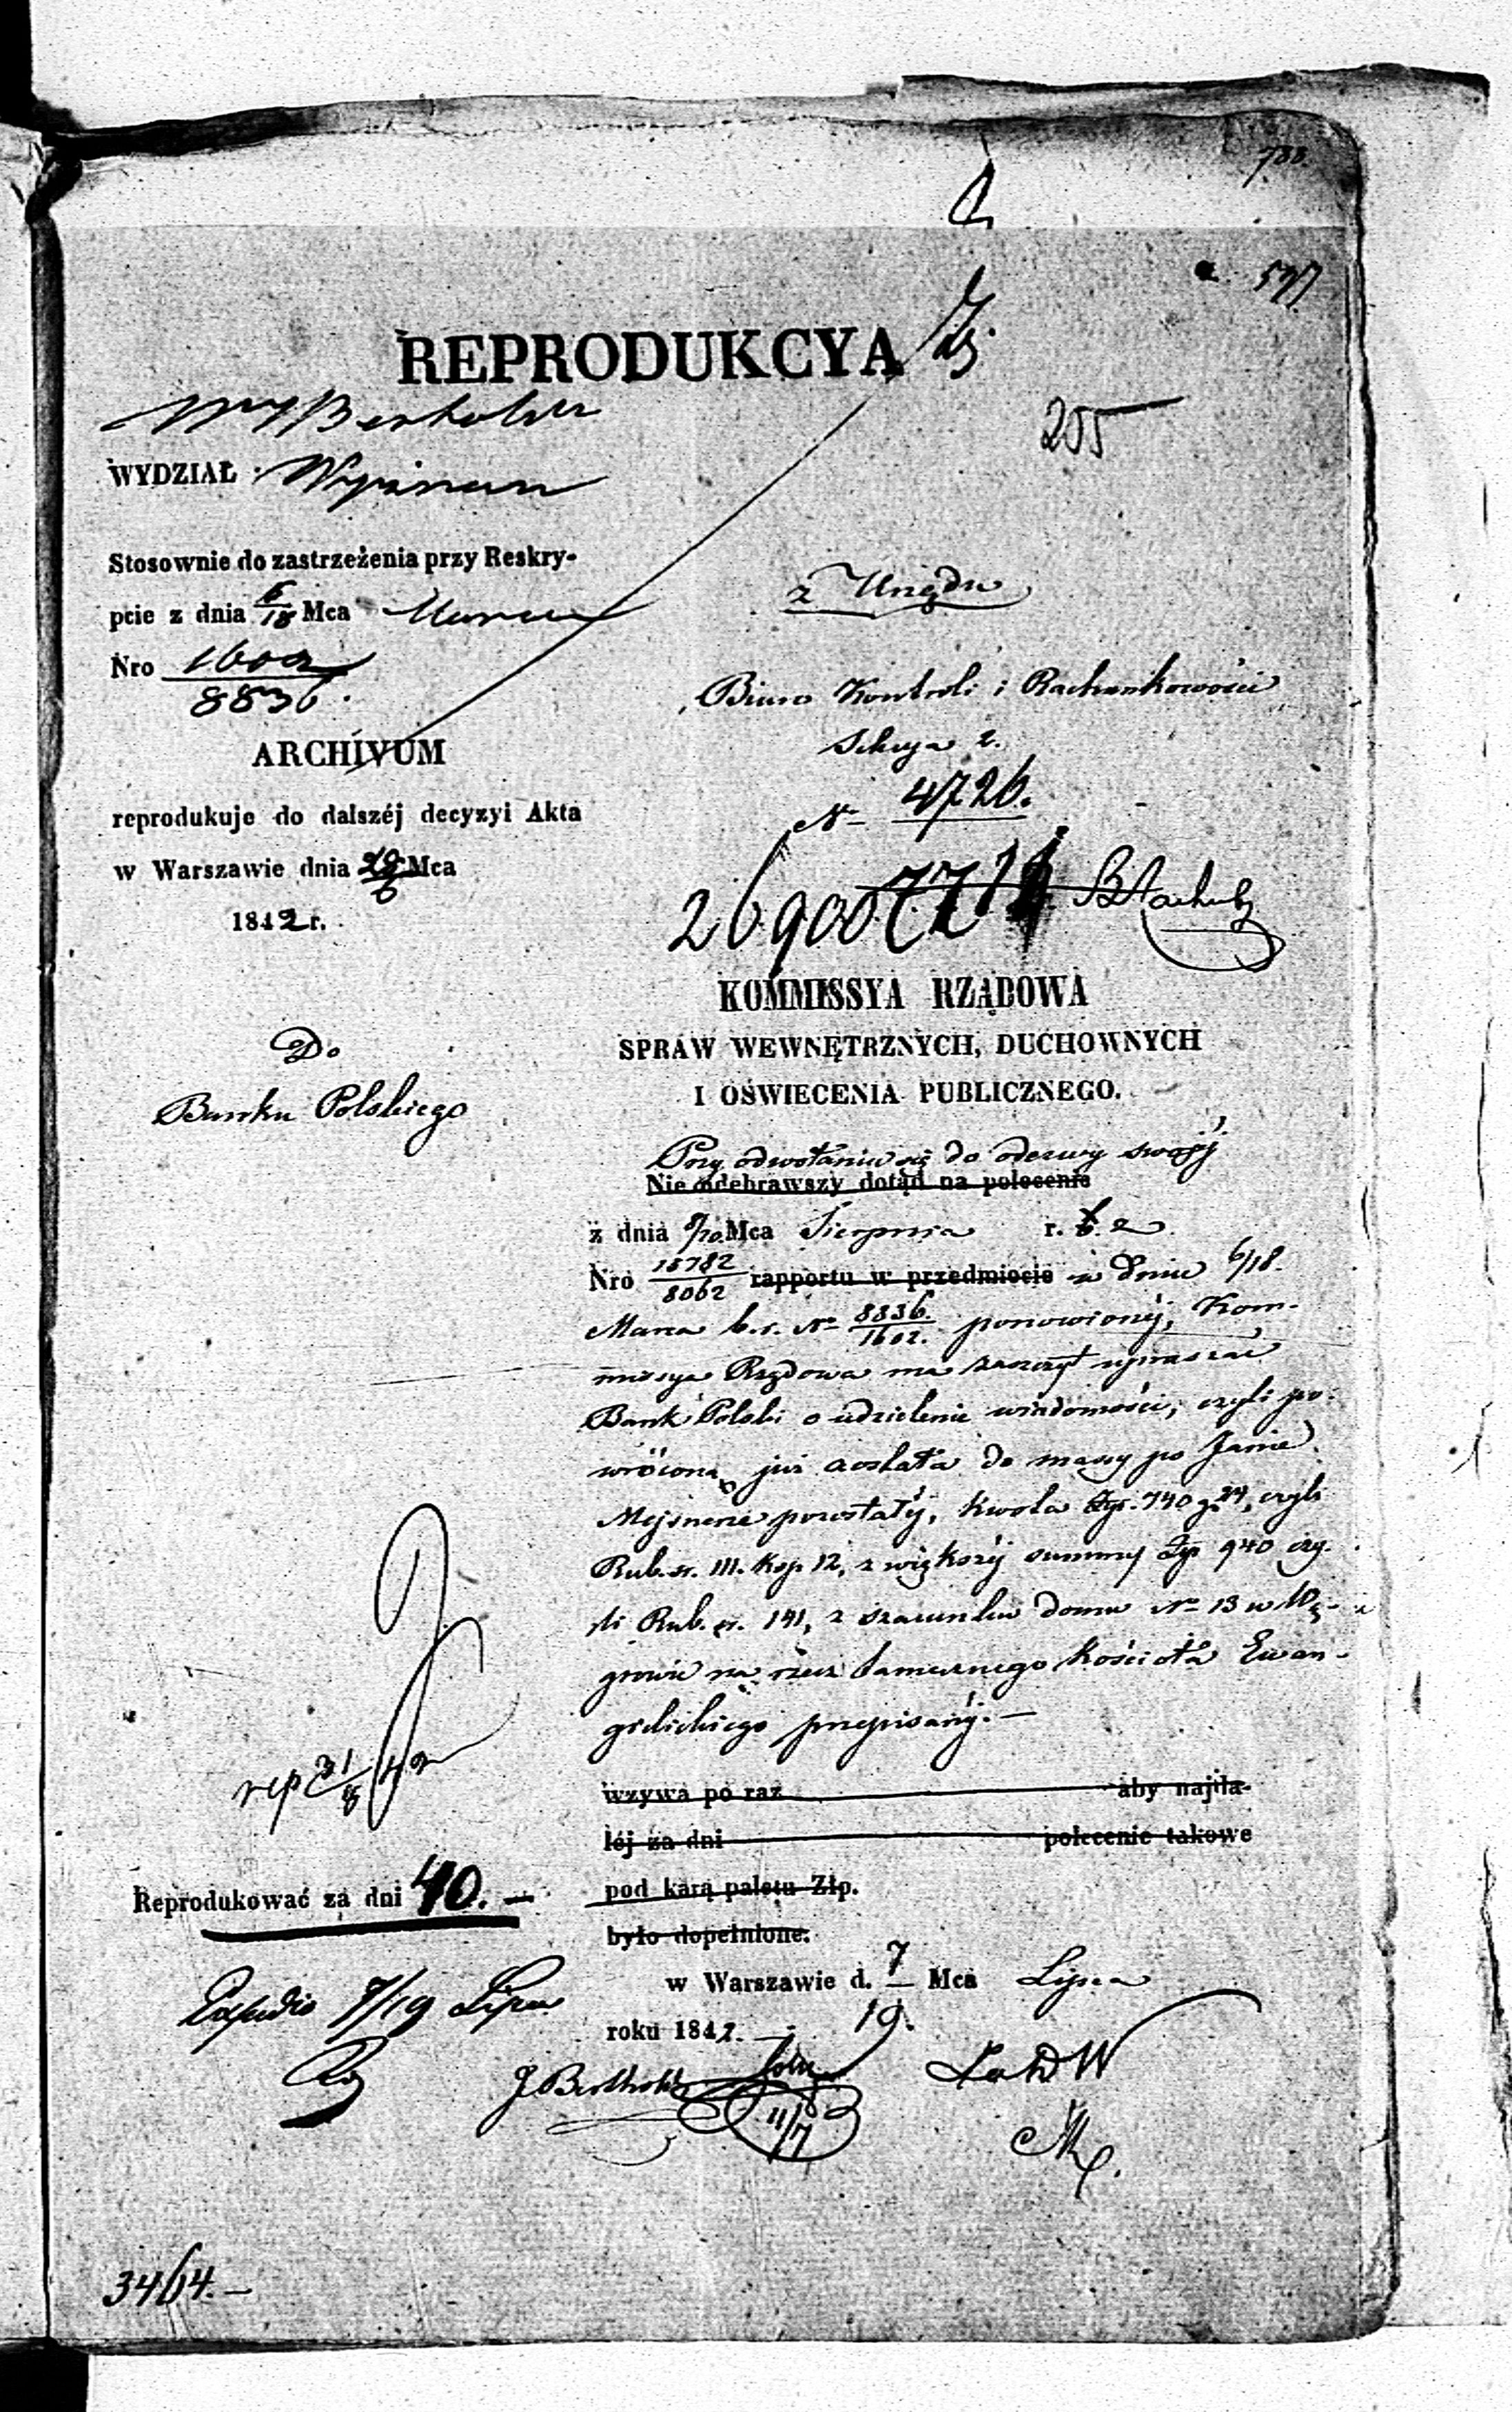 788.
577
REPRODUKCYA
255
WYDZIAŁ: Wyznan
Stosownie do zastrzeżenia przy Reskry-
pcie z dnia 6/18 Mca Marca
Nro 1602
8836.
ARCHIVUM
reprodukuje do dalszéj decyzyi Akta
w Warszawie dnia Mca
1842 r.
Do
Banku Polskiego
z Urzędu
Biuro Kontroli i Rachunkowości
Sekcya 2.
Nº 4726.
26900
KOMMISSYA RZĄDOWA
SPRAW WEWNĘTRZNYCH, DUCHOWNYCH
I OŚWIECENIA PUBLICZNEGO.
Przy odwołaniu się do odezwy swojéj
Nie odebrawszy dotąd na polecenie
z dnia Mca Sierpnia r.
Nro 15782/8062 rapportu w przedmiocie w dniu 6/18.
Marca b.r. Nº 8836./1602. ponowionéj, Kom-
missya Rządowa ma zaszczyt upraszać
Bank Polski o udzielenie wiadomości, czyli po-
wróconą już została do massy po Janie
Mejsnerze pozostałéj, kwota Złp. 740 g. 24, czyli
Rub. sr. 111. kop 12, z większéj summy Złp 940 czy-
li Rub. sr. 141, z szacunku domu Nº 13 w Wę-
growie na rzecz tamecznego kościoła Ewan-
gielickiego przepisanéj. —
wzywa po raz aby najda-
léj za dni polecenie takowe
pod karą paletu Złp.
było dopełnione.
w Warszawie d. 7 Mca Lipca
19.
roku 1842. —
rep 31/8 42
Reprodukować za dni 40. —
Expedio 7/19 Lipca
J Berthold
11/7
3464. —